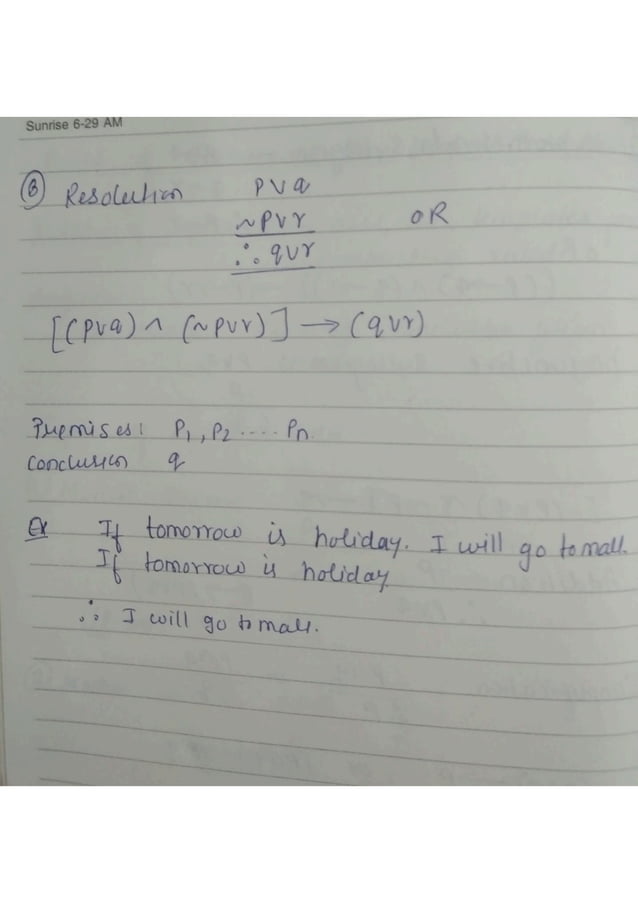 Sunrise 6-29 AM
⑧ Resolution p∨q
~p∨r OR
∴ q∨r
[(p∨q) ∧ (~p∨r)] → (q∨r)
Premises: P1, P2 ..... Pn.
Conclusion q
Ex If tomorrow is holiday. I will go to mall.
If tomorrow is holiday
∴ I will go to mall.